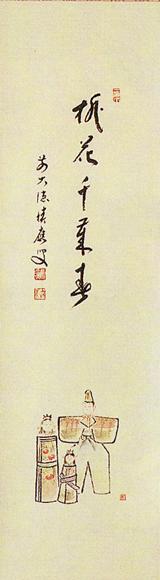 桃花千歳春
前大徳積應叟